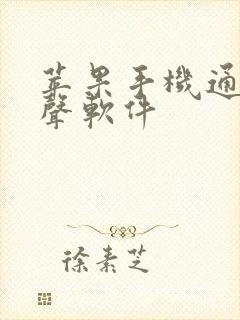 苹果手機通
聲軟件
徐素芝